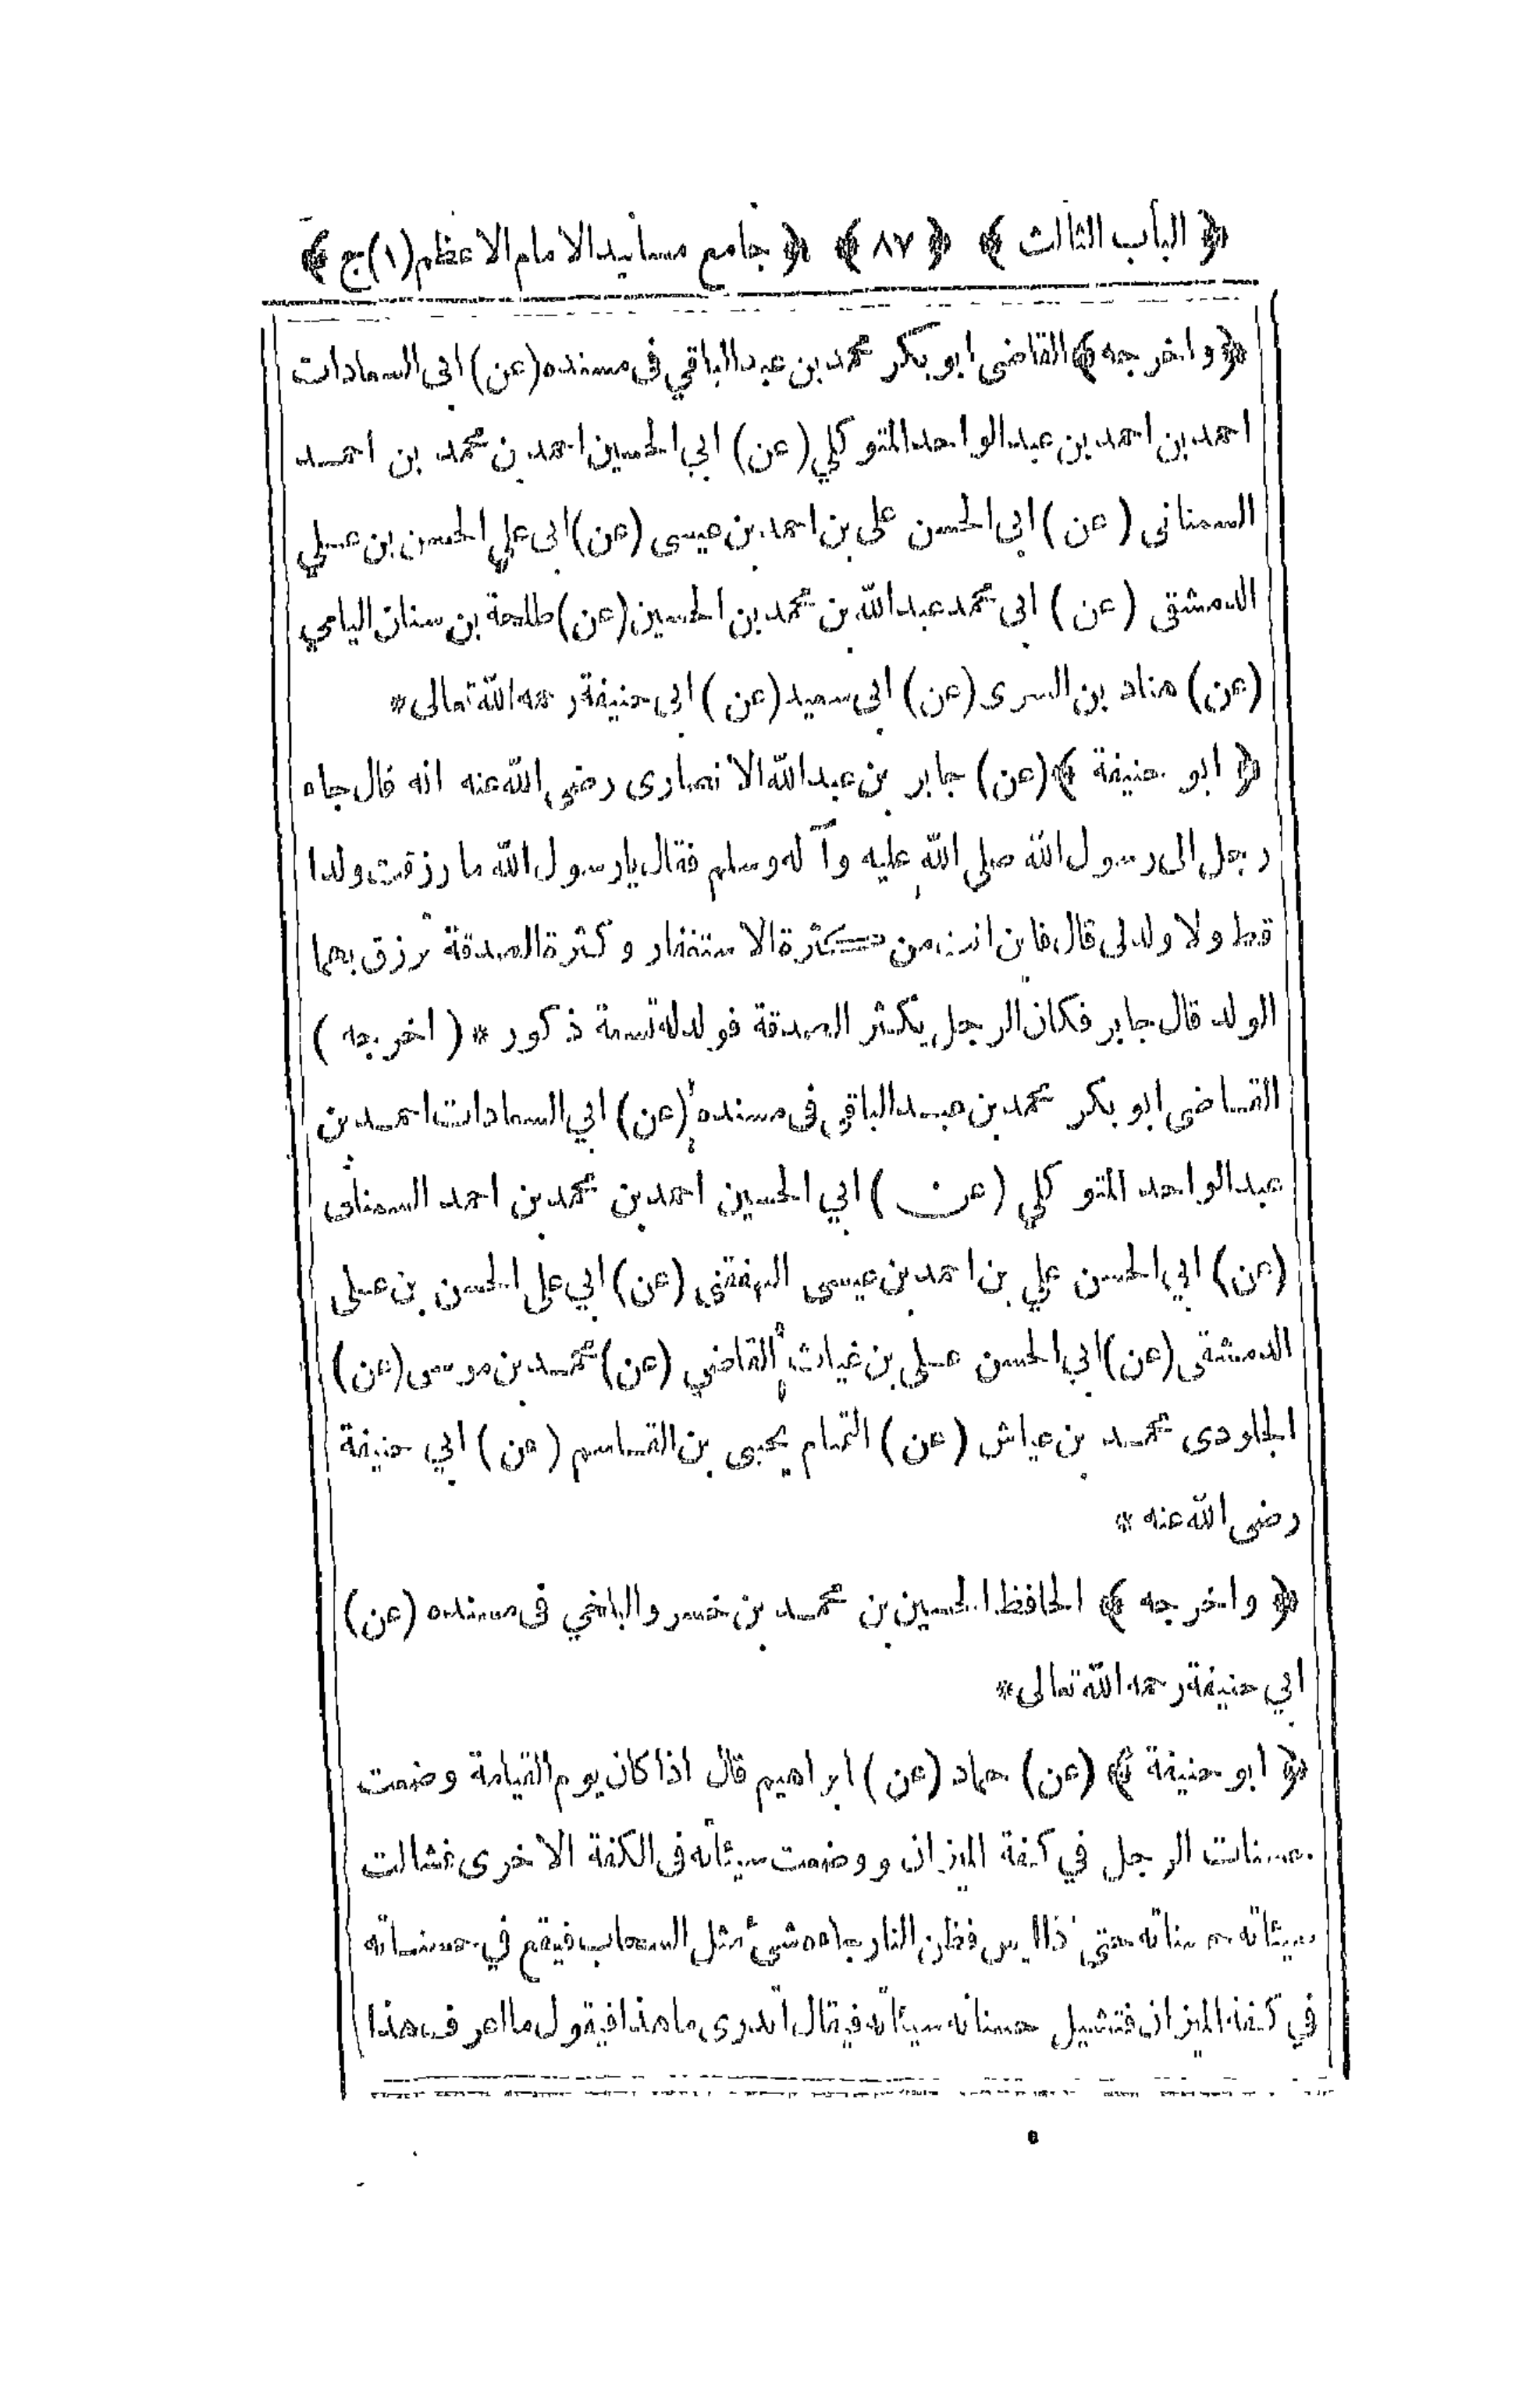 ﴿ الباب الثالث ﴾ ﴿ ٨٧ ﴾ ﴿ جامع مسانيد الامام الاعظم (١) ج ﴾
﴿ واخرجه ﴾ القاضى ابو بكر محمد بن عبد الباقي فى مسنده (عن) ابى السعادات
احمد بن احمد بن عبد الواحد المتوكلي (عن) ابي الحسين احمد بن محمد بن احمد
السمنانى (عن) ابى الحسن على بن احمد بن عيسى (عن) ابى علي الحسن بن عــلي
الدمشقى (عن) ابى محمد عبد الله بن محمد بن الحسين (عن) طلحة بن سنان اليامي
(عن) هناد بن السرى (عن) ابى سعيد (عن) ابى حنيفة رحمه الله تعالى *
﴿ ابو حنيفة ﴾ (عن) جابر بن عبد الله الانصارى رضى الله عنه انه قال جاء
رجل الى رسول الله صلى الله عليه وآله وسلم فقال يارسول الله ما رزقت ولدا
قط ولا ولد لى قال فاين انت من كثرة الاستغفار وكثرة الصدقة ترزق بهما
الولد قال جابر فكان الرجل يكثر الصدقة فولد له تسعة ذكور * (اخرجه)
القاضى ابو بكر محمد بن عبد الباقي فى مسنده (عن) ابي السعادات احمد بن
عبد الواحد المتوكلي (عن) ابي الحسين احمد بن محمد بن احمد السمنانى
(عن) ابي الحسن علي بن احمد بن عيسى (عن) ابي على الحسن بن عــلى
الدمشقى (عن) ابي الحسن عــلى بن غياث القاضي (عن) محمد بن موسى (عن)
الجلودى محمد بن عياش (عن) التمام يحيى بن القاسم (عن) ابي حنيفة
رضى الله عنه *
﴿ واخرجه ﴾ الحافظ الحسين بن محمد بن خسرو البلخي فى مسنده (عن)
ابي حنيفة رحمه الله تعالى *
﴿ ابو حنيفة ﴾ (عن) حماد (عن) ابراهيم قال اذا كان يوم القيامة وضعت
حسنات الرجل في كفة الميزان ووضعت سيئاته فى الكفة الاخرى فشالت
سيئاته حسناته حتى اذا ايس فظن النار جاءه شئ مثل السحاب فيقع في حسناته
في كفة الميزان فتشيل حسناته سيئاته فيقال اتدرى ما هذا فيقول ما اعرف هذا